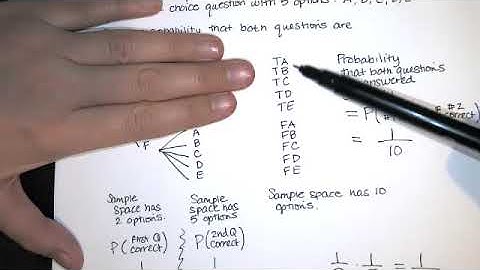 choice question with 5 options: A, B, C, D, E
probability that both questions are
TA
TB
TC
TD
TE
FA
FB
FC
FD
FE
F
A
B
C
D
E
Probability
that both questions
answered
= P(
#2
correct)
= 1/10
Sample
space has
2 options.
Sample
space has
5 options
Sample space has 10
options.
P(First Q correct)
P(2nd Q correct)
1
1
1 · 1 = 1